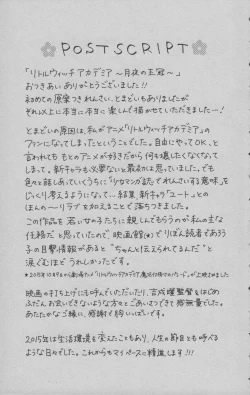 POSTSCRIPT
「リトルウィッチアカデミア〜月夜の王冠〜」
おつきあいありがとうございました!!
初めての原案つきれんさい、とまどいもありましたが
それ以上に本当に本当に楽しんで描かせていただきました…!
とまどいの原因は、私がアニメ「リトルウィッチアカデミア」の
ファンになってしまったということでした。自由にやってOK、と
言われても もとのアニメが好きだから何も壊したくなくなって
しまって。新キャラも必要ないと最初は思っていました。でも
色々と話しあっていくうちに「少女マンガ誌でれんさいする意味」を
じっくり考えるようになって…結果、新キャラ「ユート」との
ほんの〜りラブを加えることと落ちつきました。
この作品を若い女の子たちに親しんでもらうのが私の主な
任務だと思っていたので、映画館(*)でりぼん読者であろう
子の目撃情報があると"ちゃんと伝えられてるんだ"と
涙ぐむほどうれしかったです。
映画の打ち上げにも呼んでいただいたり、吉成曜監督をはじめ
ふだんお会いできないような方々とごあいさつできて感無量でした。
あたたかなご縁に、感謝で胸いっぱいです。
2015年は生活環境も変えたこともあり、人生の節目とも呼べる
ような日々でした。これからもマイペースに精進します!!!